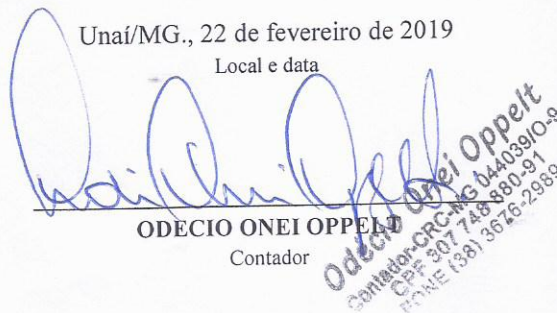 Unaí/MG., 22 de fevereiro de 2019
Local e data
ODECIO ONEI OPPELT
Contador
Odecio Onei Oppelt
Contador-CRC-MG 044039/O-9
CPF 307 748 880-91
FONE (38) 3676-2989